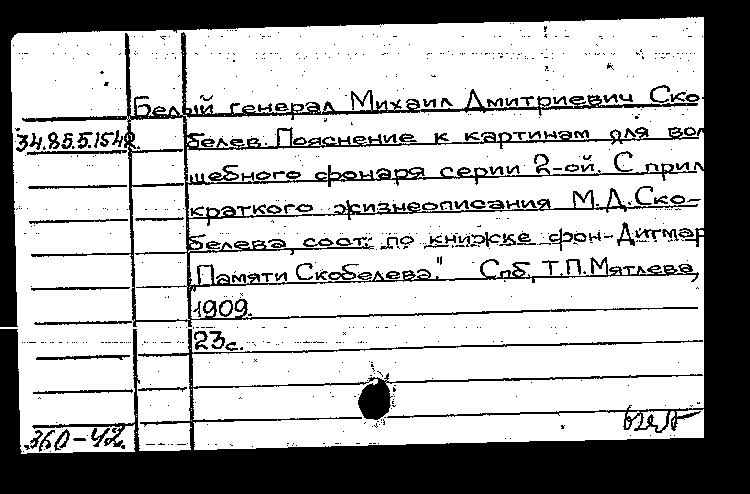 Белый генерал Михаил Дмитриевич Ско
34.85.5.1542. белев. Пояснение к картинам для вол
шебного фонаря серии 2-ой. С прил
краткого жизнеописания М.Д.Ско-
белева, сост. по книжке фон-Дитмар
"Памяти Скобелева." Спб, Т.П.Мятлева,
1909.
23с.
360-42.